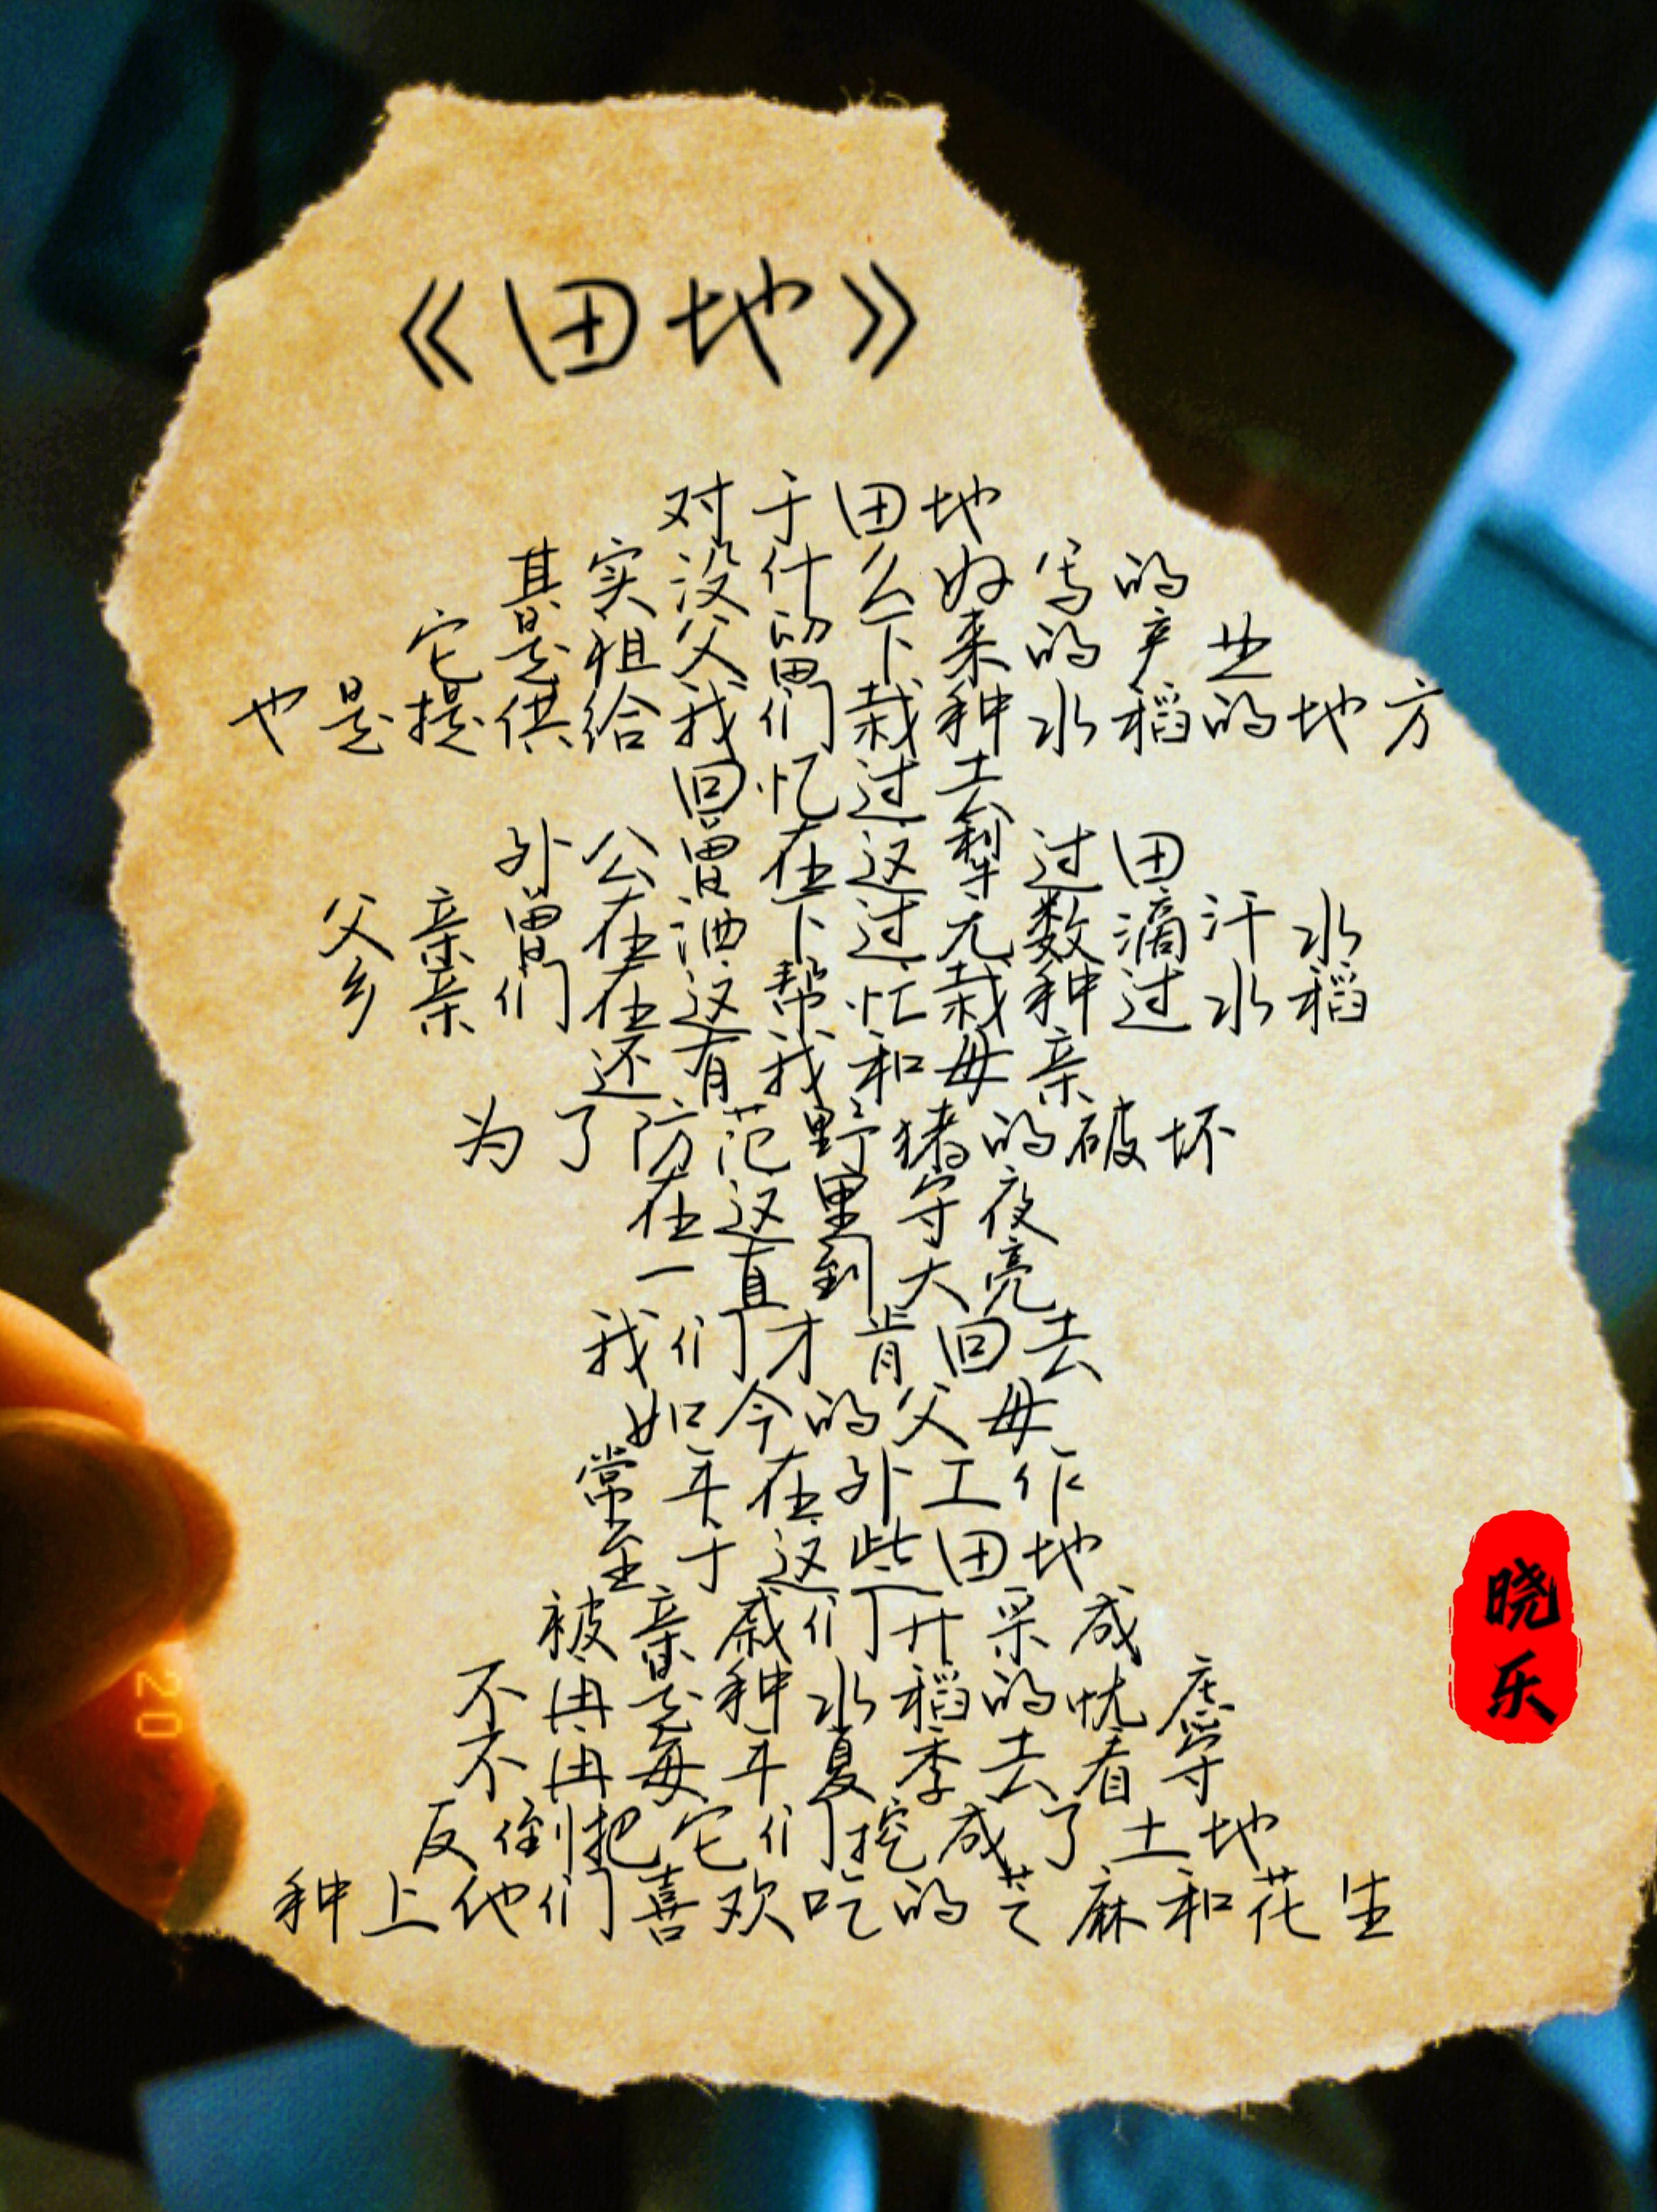 《田地》
对于田地
其实没什么好写的
它是祖父留下来的产业
也是提供给我们栽种水稻的地方
回忆过去
外公曾在这犁过田
父亲曾在洒下过无数滴汗水
乡亲们在这帮忙栽种过水稻
还有我和母亲
为了防范野猪的破坏
在这里守夜
一直到大亮
我们才肯回去
如今的父母
常年在外工作
至于这些田地
被亲戚们开采成
不再是种水稻的忧虑
不再每年夏季去看守
反倒把它们挖成了土地
种上他们喜欢吃的芝麻和花生
晓乐
20